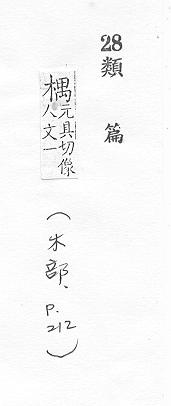 28類篇
楀元具切像
人文一
(木部、P.212)